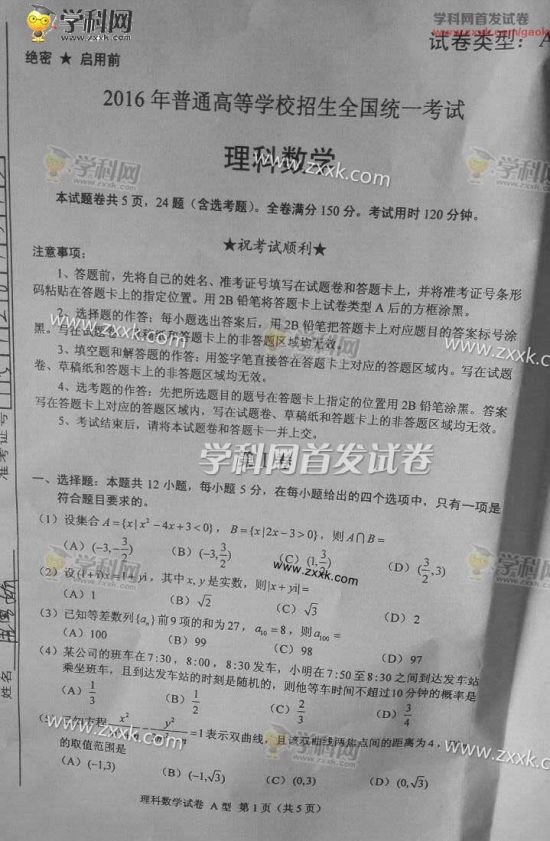 学科网
学科网首发试卷
www.zxxk.com/gaok
绝密 ★ 启用前
试卷类型：A
2016 年普通高等学校招生全国统一考试
理科数学
本试题卷共 5 页，24 题（含选考题）。全卷满分 150 分。考试用时 120 分钟。
★祝考试顺利★
注意事项：
1、答题前，先将自己的姓名、准考证号填写在试题卷和答题卡上，并将准考证号条形
码粘贴在答题卡上的指定位置。用 2B 铅笔将答题卡上试卷类型 A 后的方框涂黑。
2、选择题的作答：每小题选出答案后，用 2B 铅笔把答题卡上对应题目的答案标号涂
黑。写在试题卷、草稿纸和答题卡上的非答题区域均无效。
3、填空题和解答题的作答：用签字笔直接答在答题卡上对应的答题区域内。写在试题
卷、草稿纸和答题卡上的非答题区域均无效。
4、选考题的作答：先把所选题目的题号在答题卡上指定的位置用 2B 铅笔涂黑。答案
写在答题卡上对应的答题区域内，写在试题卷、草稿纸和答题卡上的非答题区域均无效。
5、考试结束后，请将本试题卷和答题卡一并上交。
学科网首发试卷
一、选择题：本题共 12 小题，每小题 5 分，在每小题给出的四个选项中，只有一项是
符合题目要求的。
（1）设集合 A={x|x²-4x+3<0}，B={x|2x-3>0}，则 A∩B=
（A）(-3,-3/2) （B）(-3,3/2) （C）(1,3/2) （D）(3/2,3)
（2）设(1+i)x=1+yi，其中 x,y 是实数，则|x+yi|=
（A）1 （B）√2 （C）√3 （D）2
（3）已知等差数列{aₙ}前 9 项的和为 27，a₁₀=8，则 a₁₀₀=
（A）100 （B）99 （C）98 （D）97
（4）某公司的班车在 7:30，8:00，8:30 发车，小明在 7:50 至 8:30 之间到达发车站
乘坐班车，且到达发车站的时刻是随机的，则他等车时间不超过 10 分钟的概率是
（A）1/3 （B）1/2 （C）2/3 （D）3/4
知方程 =1 表示双曲线，且该双曲线两焦点间的距离为 4，
的取值范围是
（A）(-1,3) （B）(-1,√3) （C）(0,3) （D）(0,√3)
理科数学试卷 A 型 第 1 页（共 5 页）
准考证号
姓名
www.zxxk.com